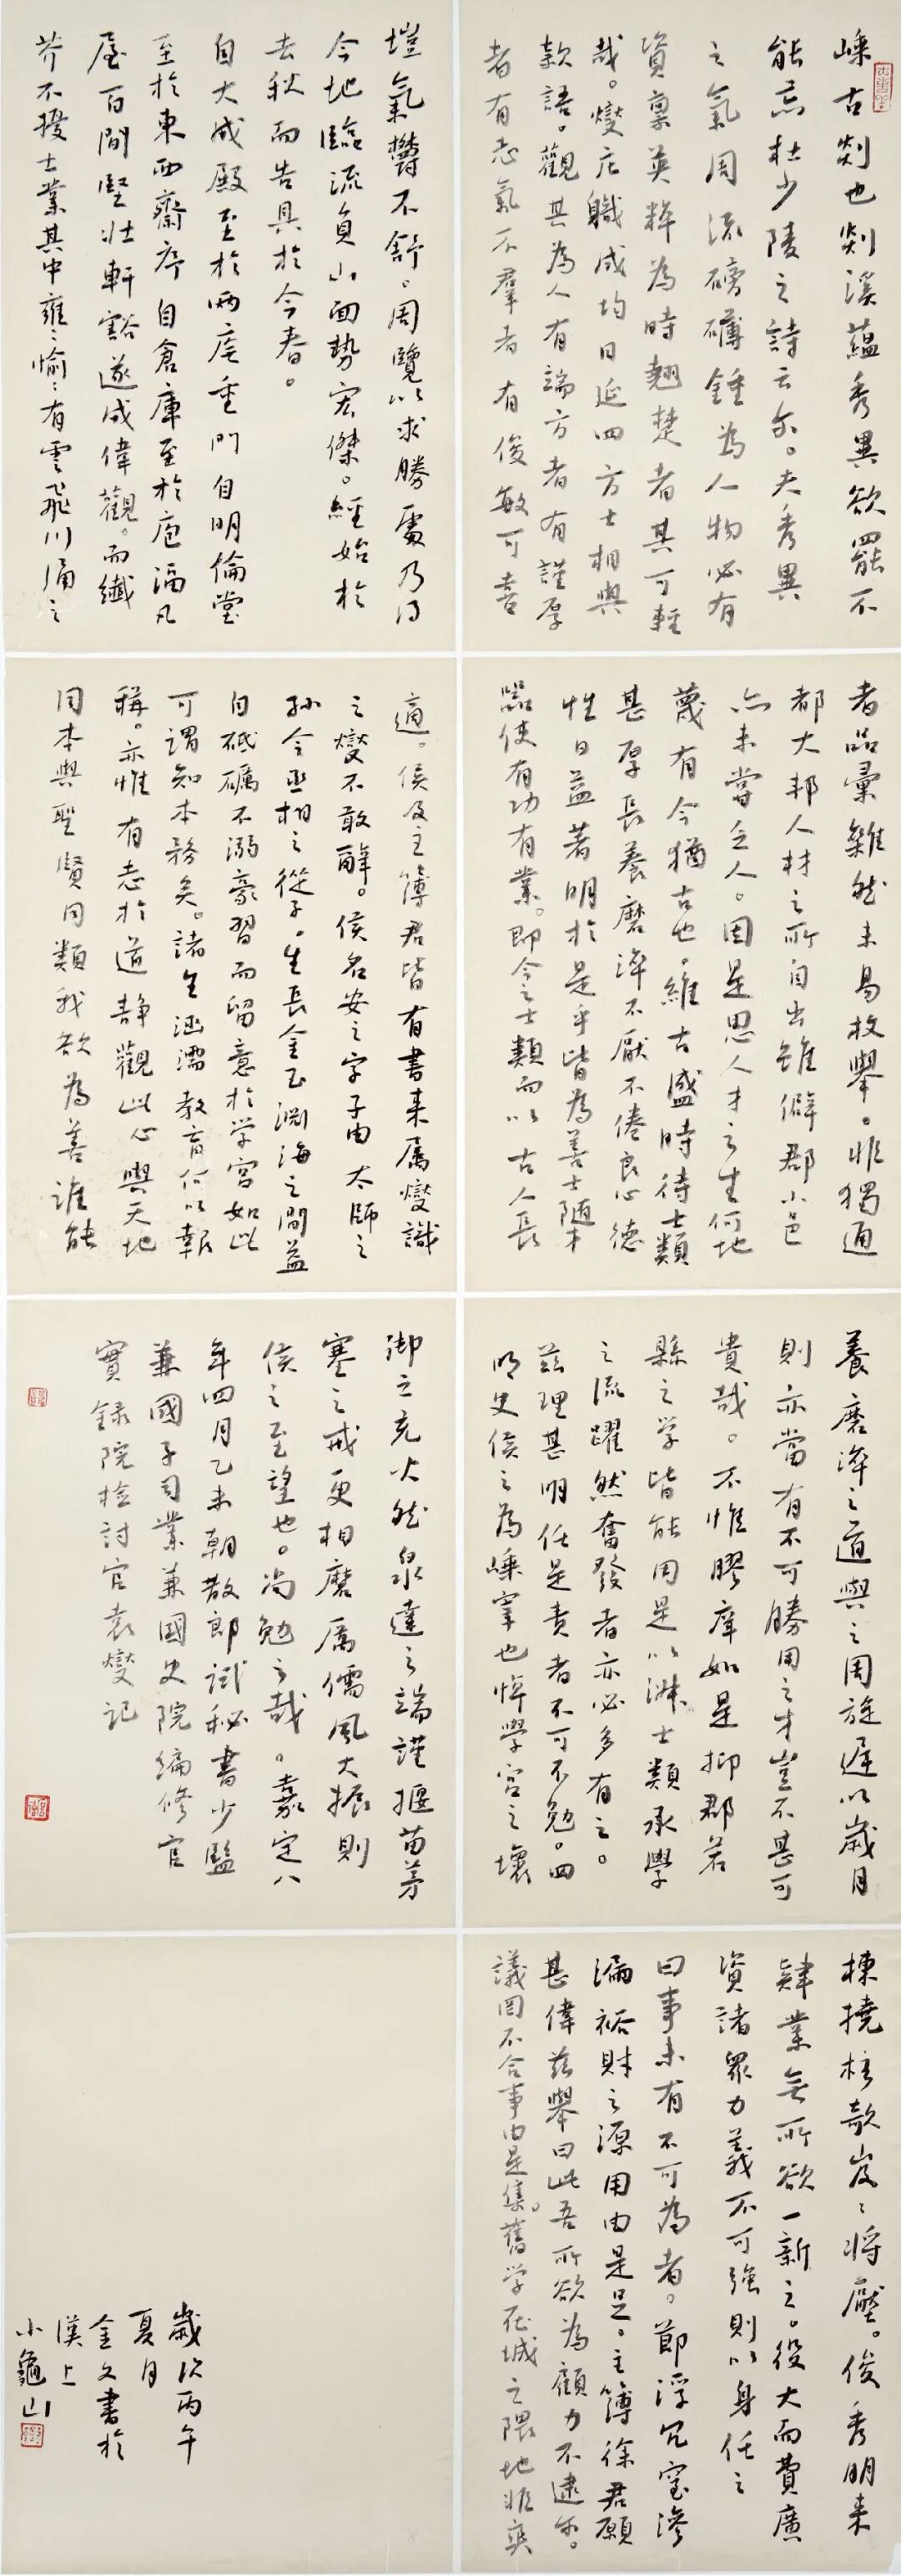 嵊古剡也剡溪蘊秀異欲罷不
能忘杜少陵之詩云尒。夫秀異
之氣周流磅礴鍾為人物必有
資稟英粹為時翹楚者其可輕
哉。燮庀職成均日延四方士相與
款語。觀其為人有端方者有謹厚
者有志氣不羣者有俊敏可喜
者品彙雖然未易枚舉。非獨通
都大邦人材之所自出雖僻郡小邑
亦未嘗乏人。因是思人才之生何地
蔑有今猶古也。維古盛時待士類
甚厚長養磨淬不厭不倦良心德
性日益著明於是乎皆為善士隨才
器使有功有業。即今之士類而以古人長
養磨淬之道與之周旋遲以歲月
則亦當有不可勝用之才豈不甚可
貴哉。不惟膠庠如是抑郡若
縣之学皆能用是以淑士類承學
之流躍然奮發者亦必多有之。
茲理甚明任是責者不可不勉。四
明史侯之為嵊宰也悼學宮之壞
棟撓桷欹岌岌將壓。俊秀明来
肄業無所欲一新之。役大而費廣
資諸眾力義不可強則以身任之
曰事未有不可為者。節浮冗窒滲
漏裕財之源用由是足。主簿徐君願
甚偉茲舉曰此吾所欲為顧力不逮尒。
議罔不合事由是集。舊学在城之隈地非爽
塏氣鬱不舒。周覽以求勝處乃得
今地臨流負山面勢宏傑。經始於
去秋而告具於今春。
自大成殿至於兩廡重門自明倫堂
至於東西齋序自倉庫至於庖湢凡
屋百間堅壯軒豁遂成偉觀。而纖
芥不擾士業其中雍雍愉愉有雲飛川涌之
適。侯及主簿君皆有書来属燮識
之燮不敢辭。侯名安之字子由太師之
孫今丞相之從子。生長金玉淵海之間益
自砥礪不溺豪習而留意於学宮如此
可謂知本務矣。諸生涵濡教育何以報
稱。亦惟有志於道靜觀此心與天地
同本與聖賢同類我欲為善誰能
御之充火然泉達之端謹揠苗茅
塞之戒更相磨厲儒風大振則
侯之至望也。尚勉之哉。嘉定八
年四月乙未朝散郎試秘書少監
兼國子司業兼國史院編修官
實録院檢討官袁燮記
歲次丙午
夏月
金文書於
漢上
小龜山